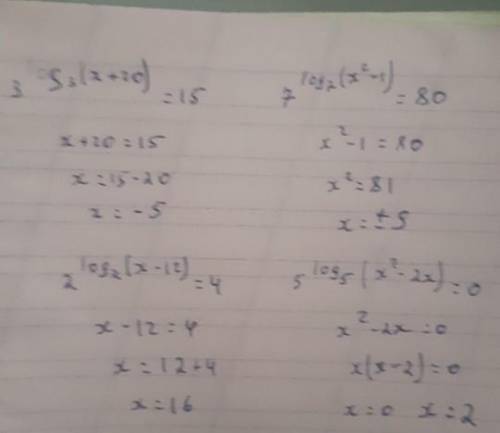 3^log_3(x+20) = 15
x+20 = 15
x = 15-20
x = -5
7^log_7(x²-1) = 80
x²-1 = 80
x² = 81
x = ±9
2^log_2(x-12) = 4
x-12 = 4
x = 12+4
x = 16
5^log_5(x²-2x) = 0
x²-2x = 0
x(x-2) = 0
x = 0 x = 2